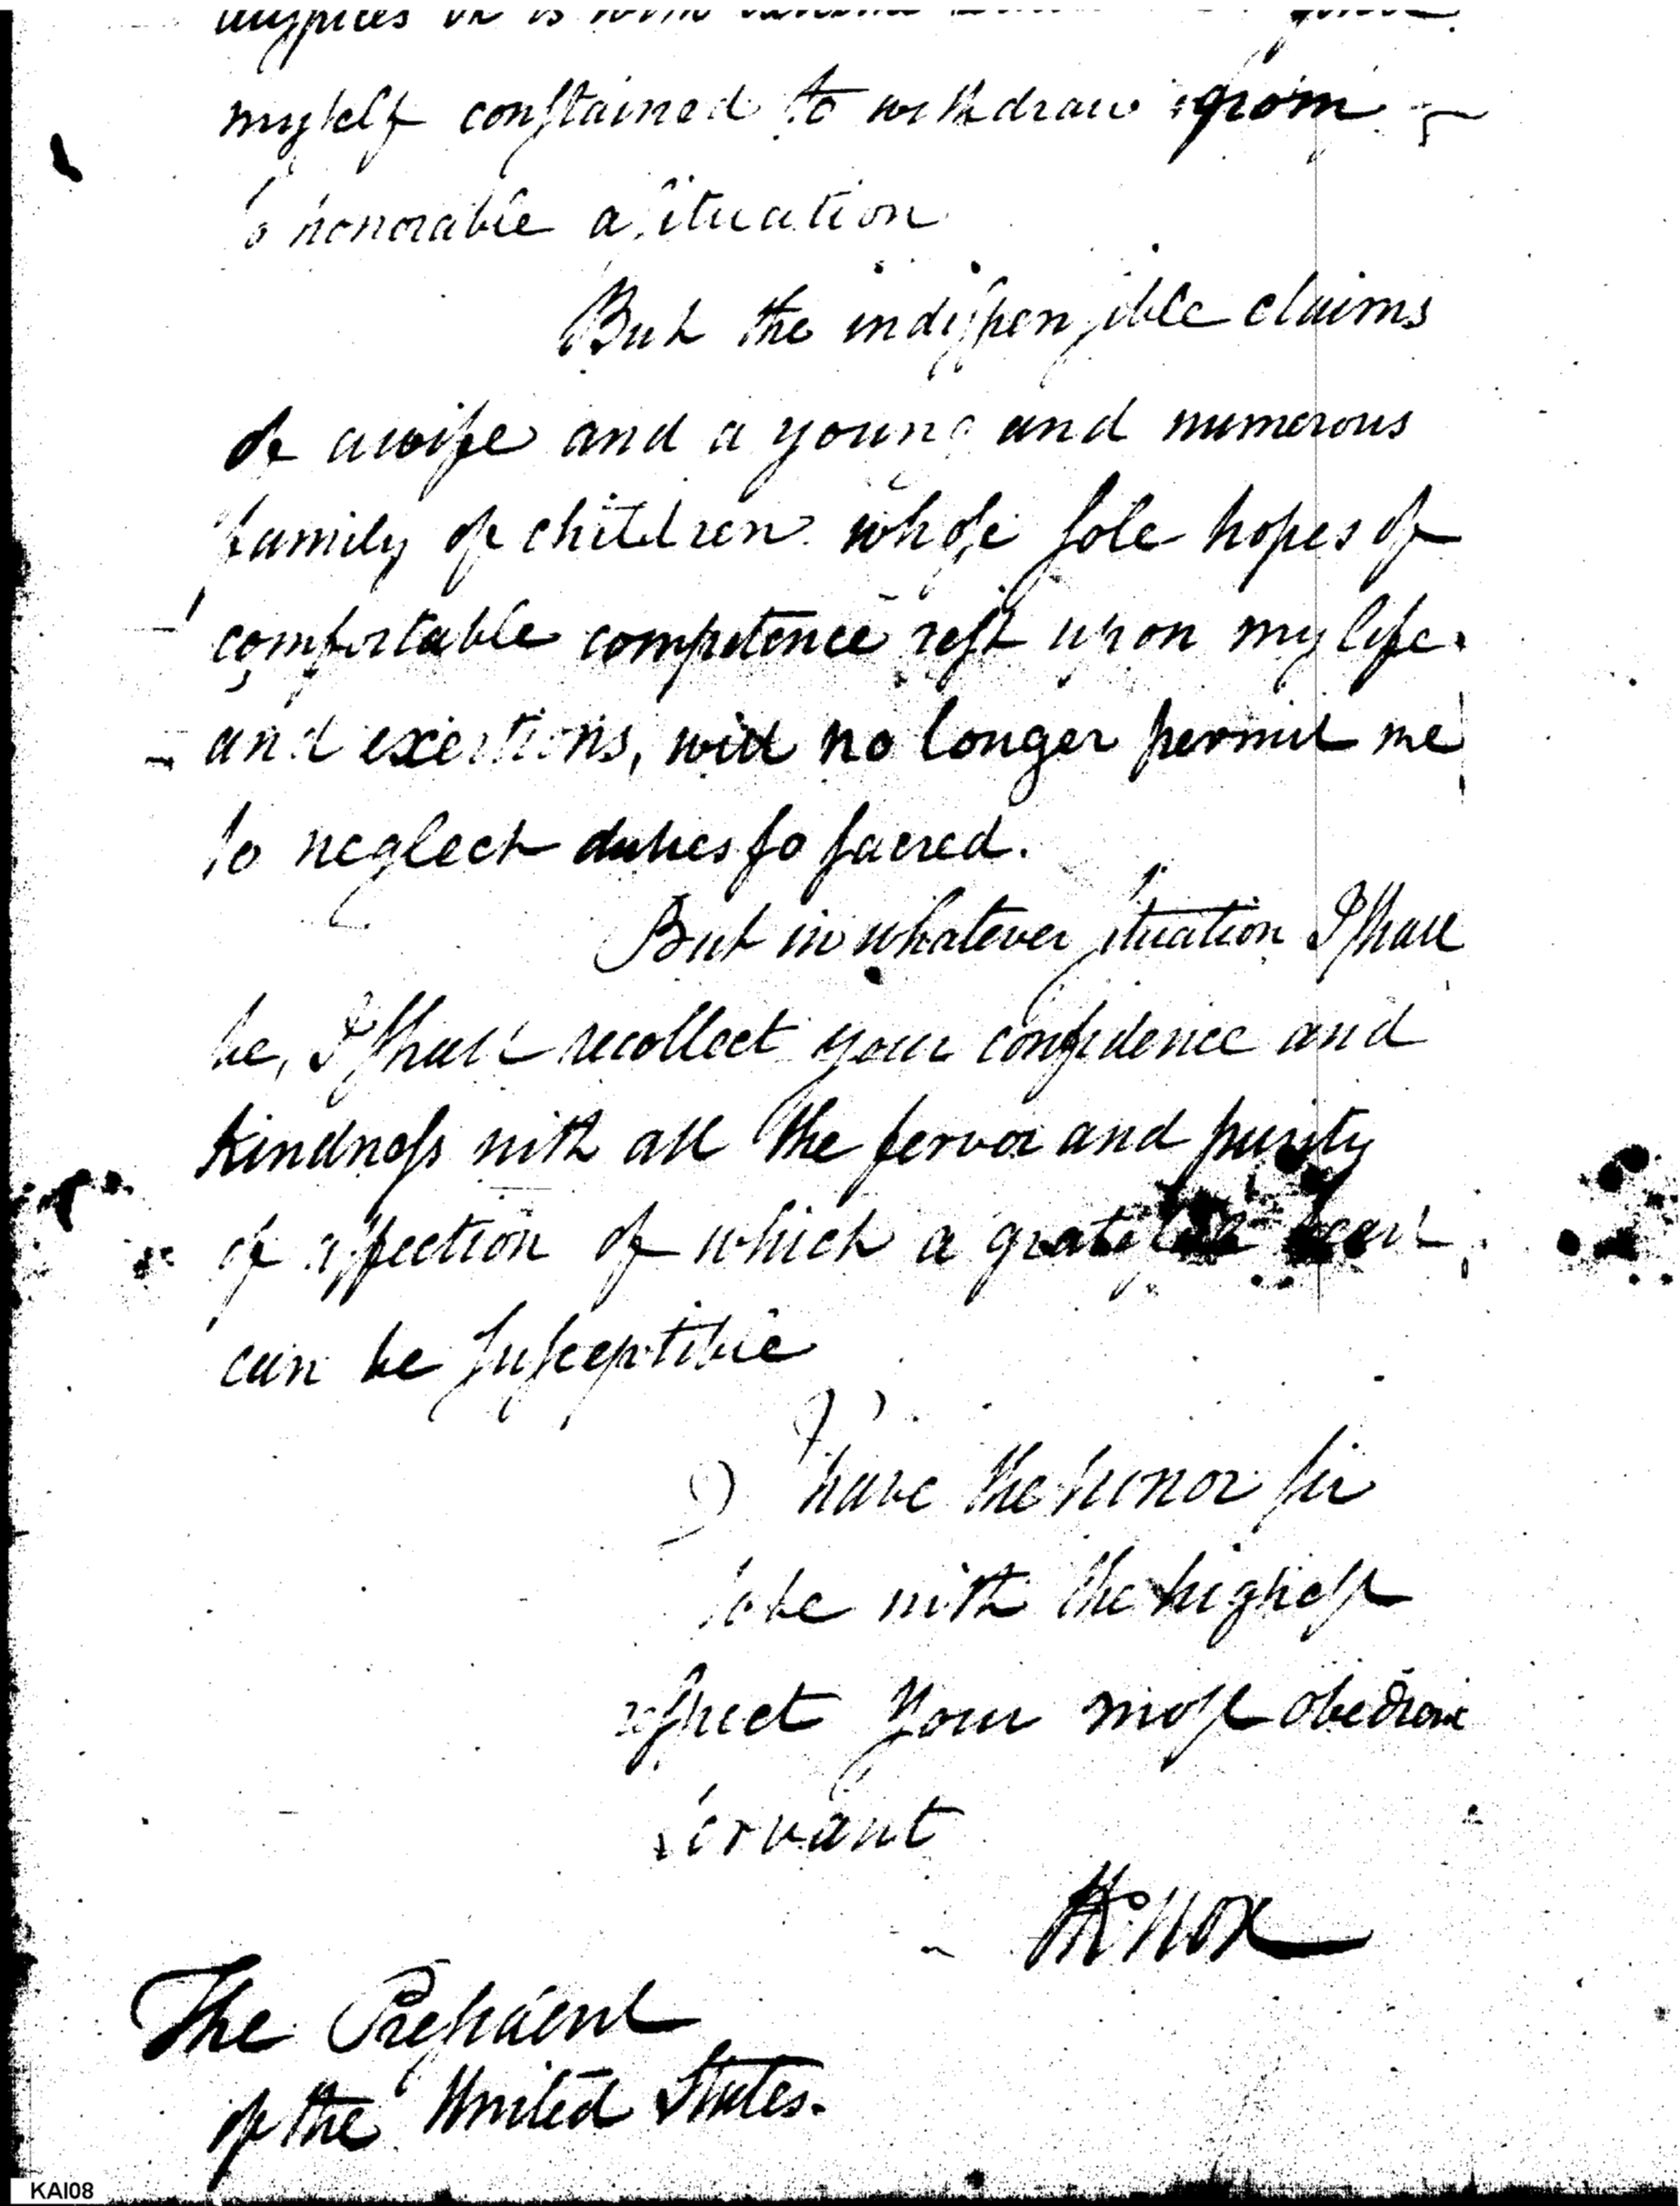 myself constained to withdraw from
so honorable a situation
But the indispensible claims
of a wife and a young and numerous
family of children whose sole hopes of
comfortable competence rest upon my life
and exertions, will no longer permit me
to neglect duties so sacred.
But in whatever situation I shall
be, I shall recollect your confidence and
kindness with all the fervor and purity
of affection of which a grateful heart
can be susceptible
I have the honor sir
to be with the highest
respect Your most obedient
servant
HKnox
The President
of the United States.
KAI08